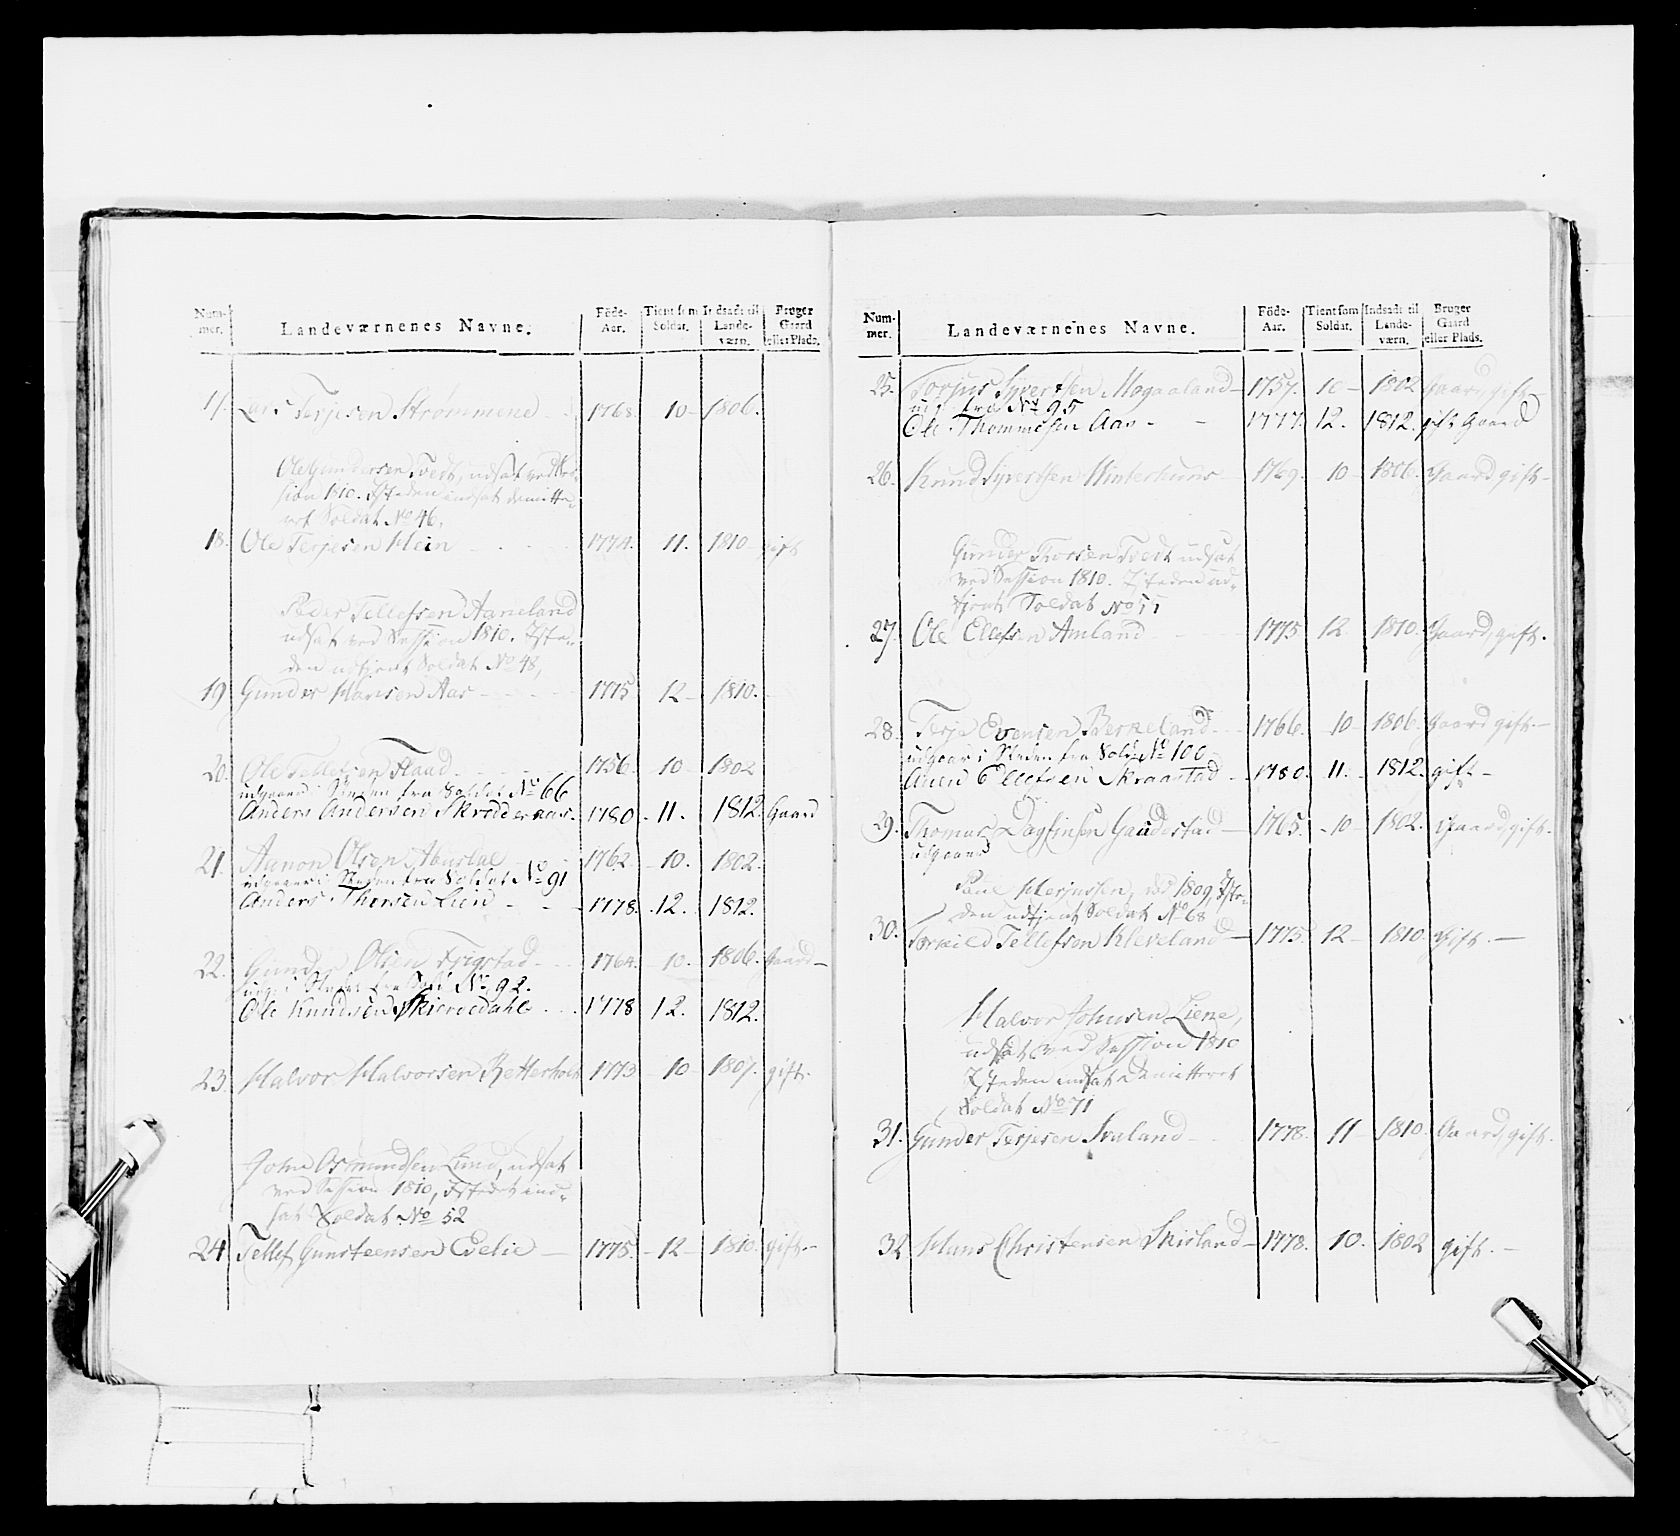 Num-
mer.
Landeværnenes Navne.
Föde-
Aar.
Tient som
Soldat.
Indsadt til
Lande-
værn.
Bruger
Gaard
eller Plads.
17. Lars Terjesen Strømmene - 1768. 10 - 1806.
Ole Gundersen Tvedt, udsat ved Ses-
sion 1810. Isteden indsat demitte-
ret Soldat No 46,
18. Ole Terjesen Hein - 1774. 11. 1810 gift
Peder Tellefsen Aaneland
udsat ved Session 1810. Iste-
den udtient Soldat No 48,
19 Gunder Hansen Aas - 1775 12 - 1810.
20. Ole Tellefsen Flaad - 1756. 10 - 1802
udgaaer i Steden fra Soldat No 66
Anders Andersen Skreddernæs. 1780 - 11. 1812. Gaard
21. Aanon Olsen 1762. 10. 1802.
udgaaer i Steden fra Soldat No 91
Anders Thorsen Lien - - 1778. 12. 1812.
22. Gunder Olsen Frigstad - 1764. 10. 1806. Gaard -
udg. i Steden fra Sold No 92.
Ole Knudsen Skieredahl 1778 12. 1812.
23. Halvor Halvorsen Retterholt 1773 10 1807. gift.
John Osmundsen Lund, udsat
ved Session 1810, Istedet ind-
sat Soldat No 52
24. Tellef Gunsteensen Evelie - 1775. - 12 - 1810. gift. -
Num-
mer.
Landeværnenes Navne.
Föde-
Aar.
Tient som
Soldat.
Indsadt til
Lande-
værn.
Bruger
Gaard
eller Plads.
25. Torjus Syvertsen Mogaaland - 1757. 10 - 1802 Gaard, gift
udg fra No 95
Ole Thommesen Aas - - 1777. 12. 1812. gift Gaard
26. Knud Syvertsen Hinterhuns - 1769. 10 - 1806. Gaard gift -
Gunder Thorsen Tvedt udsat
ved Session 1810. Isteden ud-
tjent Soldat No 51
27. Ole Ellefsen Amland - 1775. 12 1810. Gaard, gift.
28. Terje Evensen Berkeland - 1766. 10 - 1806. Gaard gift. -
udgaaer i Steden fra Sold. No 100
Auen Ellefsen Skraastad - 1780. 11. 1812. gift -
29. Thomas Dagfinsen Gaudestad - 1765. - 10 - 1802. Gaard, gift.
udgaaer
Herjussen, død 1809, Iste-
den udtjent Soldat No 68
30. Torkild Tellefsen Kleveland - 1775. 12 - 1810. Gift. -
Halvor Johnsen Liene,
udsat ved Session 1810
Isteden indsat Demitteret
Soldat No 71
31. Gunder Terjesen Svaland - 1778. 11 - 1810. Gaard, gift.
32 Hans Christensen Skisland - 1778. 10. 1802 gift. -